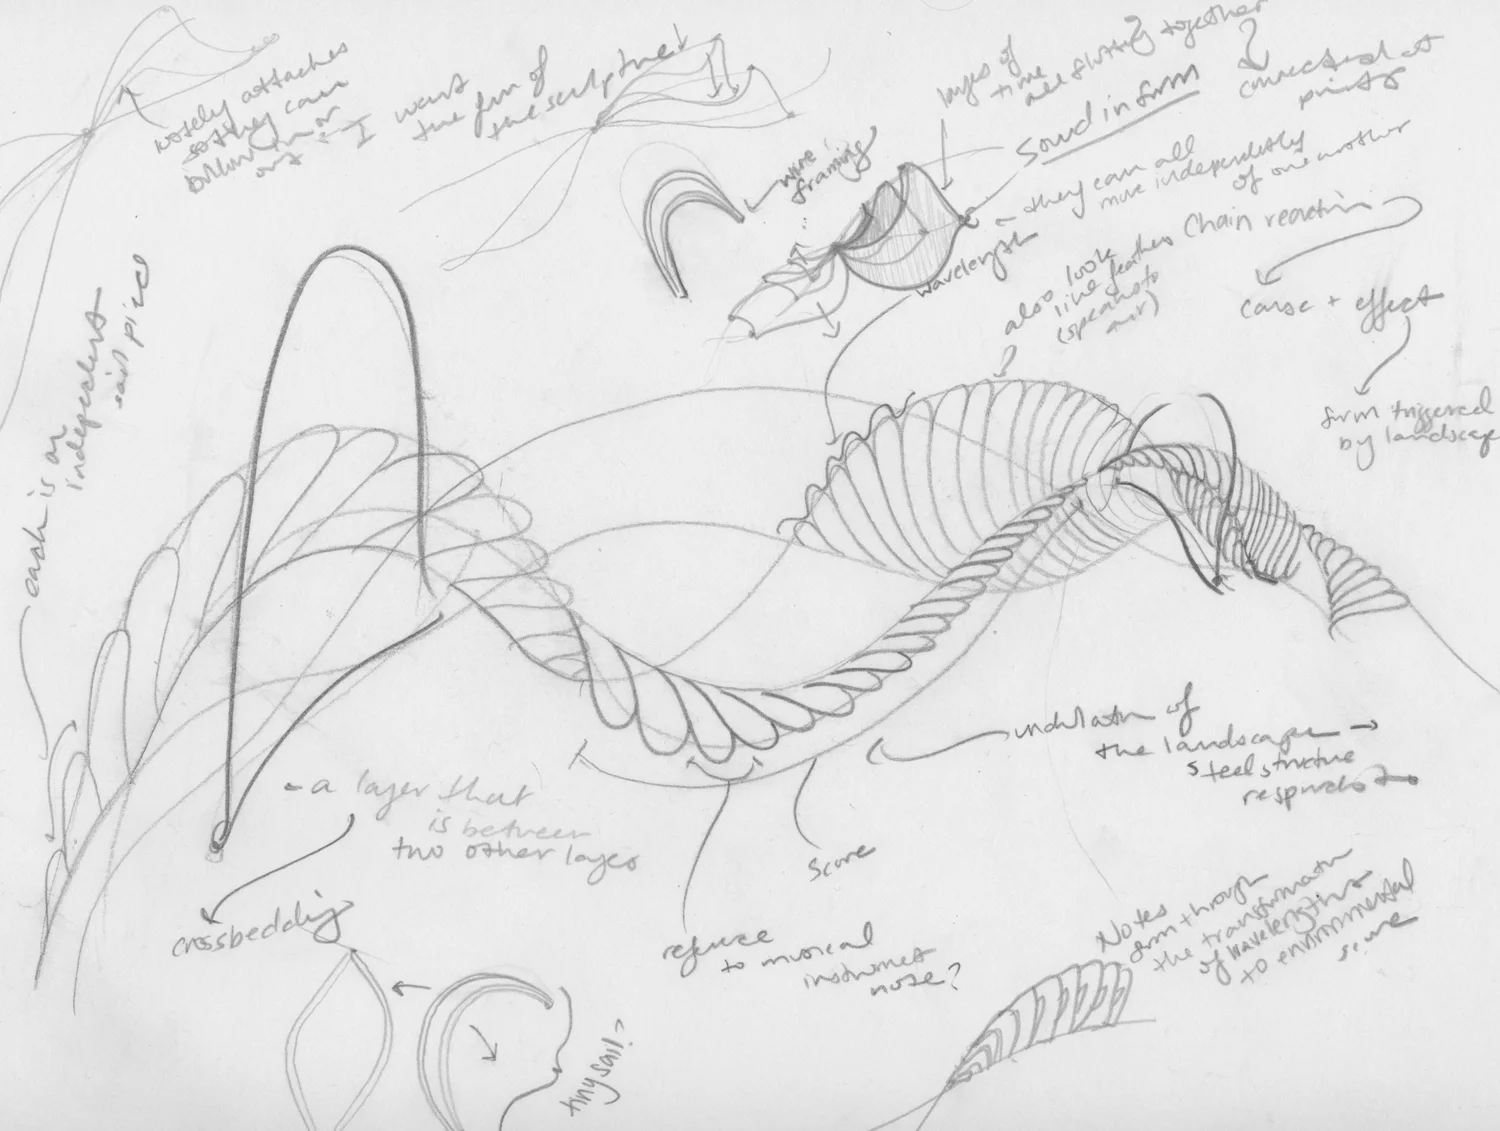 loosely attaches
so they can
billow in or
out
I want
the form of
the sculpture
layers of
time
all fluttering together
connected at
points
Sound in form
wire
framing
they can all
move independently
of one another
wavelength
also look
like feathers
(speaks to
air)
Chain reaction
cause + effect
form triggered
by landscape
each is an
independent
piece
undulation of
the landscape
steel structure
responds to
- a layer that
is between
two other layers
crossbedding
score
reference
to musical
instrument
noise?
tiny sail?
Notes
form through
the transformation
of wavelengths
to environmental
score